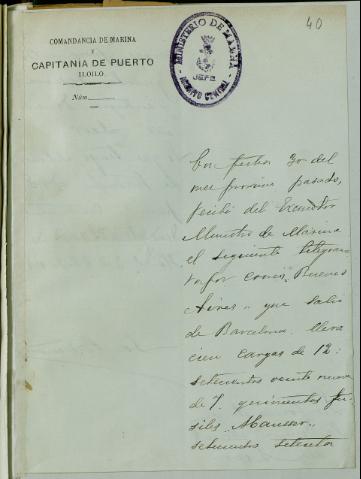 40
COMANDANCIA DE MARINA
Y
CAPITANÍA DE PUERTO
ILOILO.
Núm.
MINISTERIO DE MARINA
JEFE
ARCHIVO CENTRAL
Con fecha 30 del
mes proximo pasado,
recibí del Excmo Sor
Ministro de Marina
el siguiente telegrama
Vapor correo "Buenos
Aires" que salio
de Barcelona lleva
cien cargas de 12:
setecientos veinte nueve
de 7. quinientos fu-
siles Mausser,
setecientos setenta